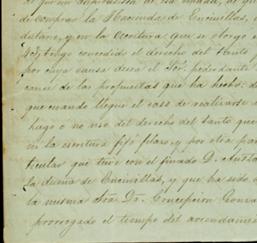 de comprar la Hacienda de Encinillas,
y en la escritura que se otorgo
tengo concedido el derecho del tanto
por cuya causa desea el Sor.
de las propuestas que ha hecho:
que cuando llegue el caso de realizarse
hago o no uso del derecho del tanto que
en la escritura fijó plazo, y por otra par
ticular que tuve con el finado D.
la dueña de Encinillas, y que ha sido
la misma Sra. Da. Concepcion
prorrogado el tiempo del arrendamien